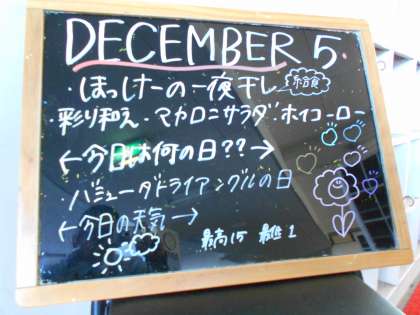 DECEMBER 5.
・ほっけーの一夜干し 給食
・彩り和え・マカロニサラダ・ホイコーロー
←今日は何の日??→
・バミューダトライアングルの日
←今日の天気→
最高15 最低1